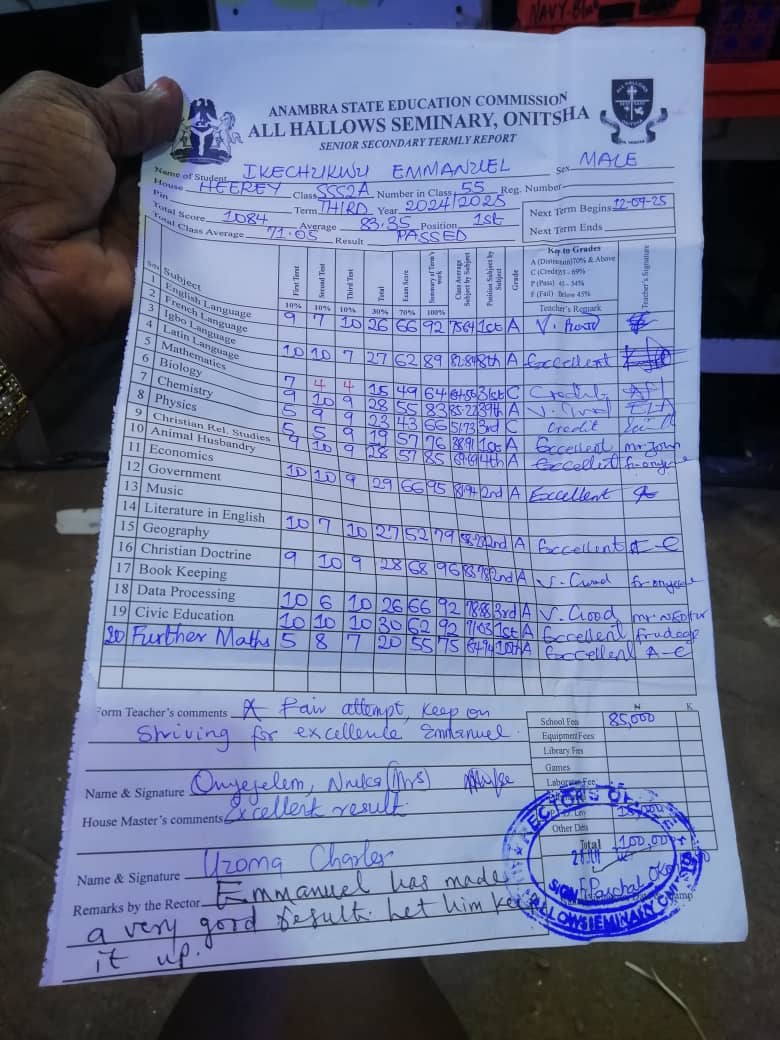 NAVY-Blue
ANAMBRA STATE EDUCATION COMMISSION
ALL HALLOWS SEMINARY, ONITSHA
SENIOR SECONDARY TERMLY REPORT
Name of Student IKECHUKWU EMMANUEL Sex MALE
House HEEREY Class SSS2A Number in Class 55 Reg. Number
Pin Term THIRD Year 2024/2025 Next Term Begins 12-09-25
Total Score 1084 Average 83.35 Position 1st Next Term Ends
Total Class Average 71.05 Result PASSED
S/No Subject First Test Second Test Third Test Total Exam Score Summary of Term's work Class Average Subject by Subject Position Subject by Subject Grade Key to Grades Teacher's Signature
A (Distinction) 70% & Above
C (Credit) 55 - 69%
P (Pass) 45 - 54%
F (Fail) Below 45%
10% 10% 10% 30% 70% 100% Teacher's Remark
1 English Language 9 7 10 26 66 92 75.64 1st A V. Good
2 French Language
3 Igbo Language 10 10 7 27 62 89 8th A Excellent
4 Latin Language
5 Mathematics 7 4 4 15 49 64 31st C Credit
6 Biology 9 10 9 28 55 83 85.22 39th A V. Good
7 Chemistry 5 9 9 23 43 66 51.73 3rd C Credit
8 Physics 5 5 9 19 57 76 1st A Excellent mr John
9 Christian Rel. Studies 9 10 9 28 57 85 4th A Excellent fr onyeje
10 Animal Husbandry
11 Economics 10 10 9 29 66 95 81.94 2nd A Excellent
12 Government
13 Music
14 Literature in English 10 7 10 27 52 79 2nd A Excellent A-C
15 Geography
16 Christian Doctrine 9 10 9 28 68 96 2nd A V. Good fr onyeje
17 Book Keeping
18 Data Processing 10 6 10 26 66 92 78.85 3rd A V. Good
19 Civic Education 10 10 10 30 62 92 71.03 1st A Excellent
20 Further Maths 5 8 7 20 55 75 10th A Excellent A-C
Form Teacher's comments A Fair attempt, keep on
striving for excellence Emmanuel.
Name & Signature Onyejelem, Nneka (Mrs)
House Master's comments Excellent result.
Name & Signature Uzoma Charles
Remarks by the Rector Emmanuel has made
a very good result. Let him keep
it up.
N K
School Fees 85,000
Equipment Fees
Library Fees
Games
Laboratory Fee
Other Dues
Total 100,000
RECTOR'S OFFICE
SIGN Paschal
ALL HALLOWS SEMINARY ONITSHA